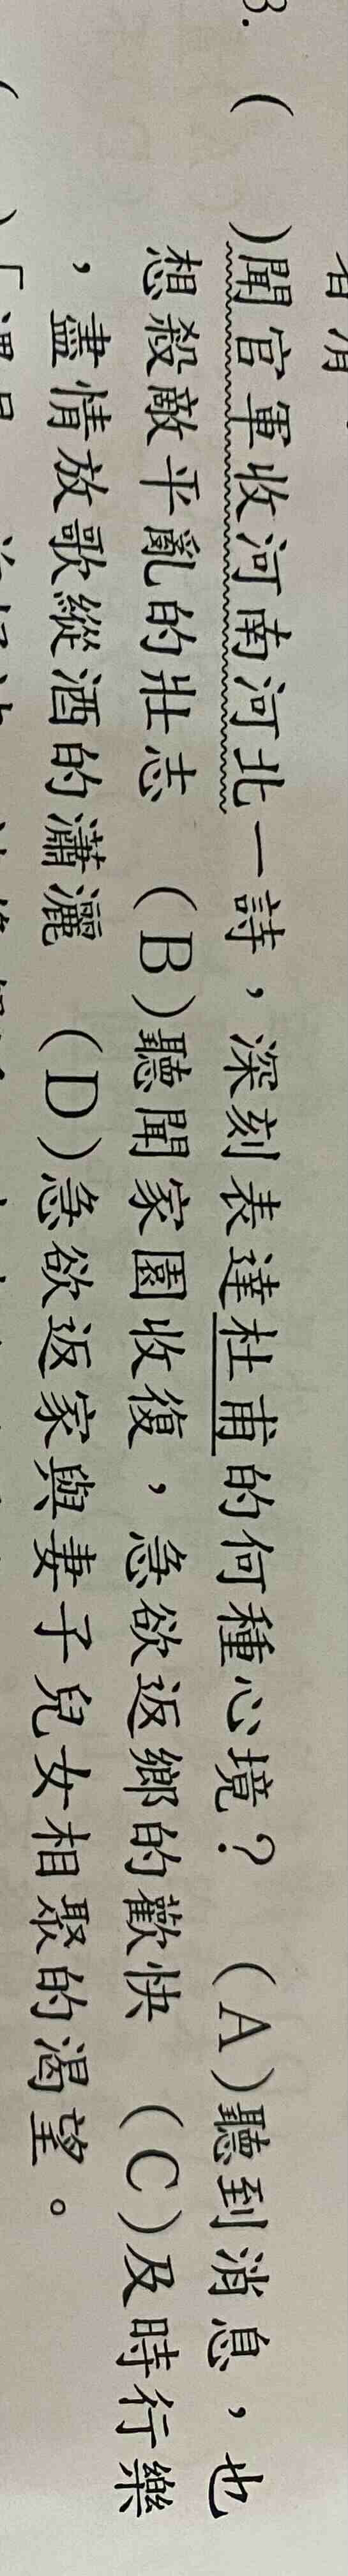 3. (　　)聞官軍收河南河北一詩，深刻表達杜甫的何種心境？　(A)聽到消息，也
想殺敵平亂的壯志　(B)聽聞家園收復，急欲返鄉的歡快　(C)及時行樂
，盡情放歌縱酒的瀟灑　(D)急欲返家與妻子兒女相聚的渴望。